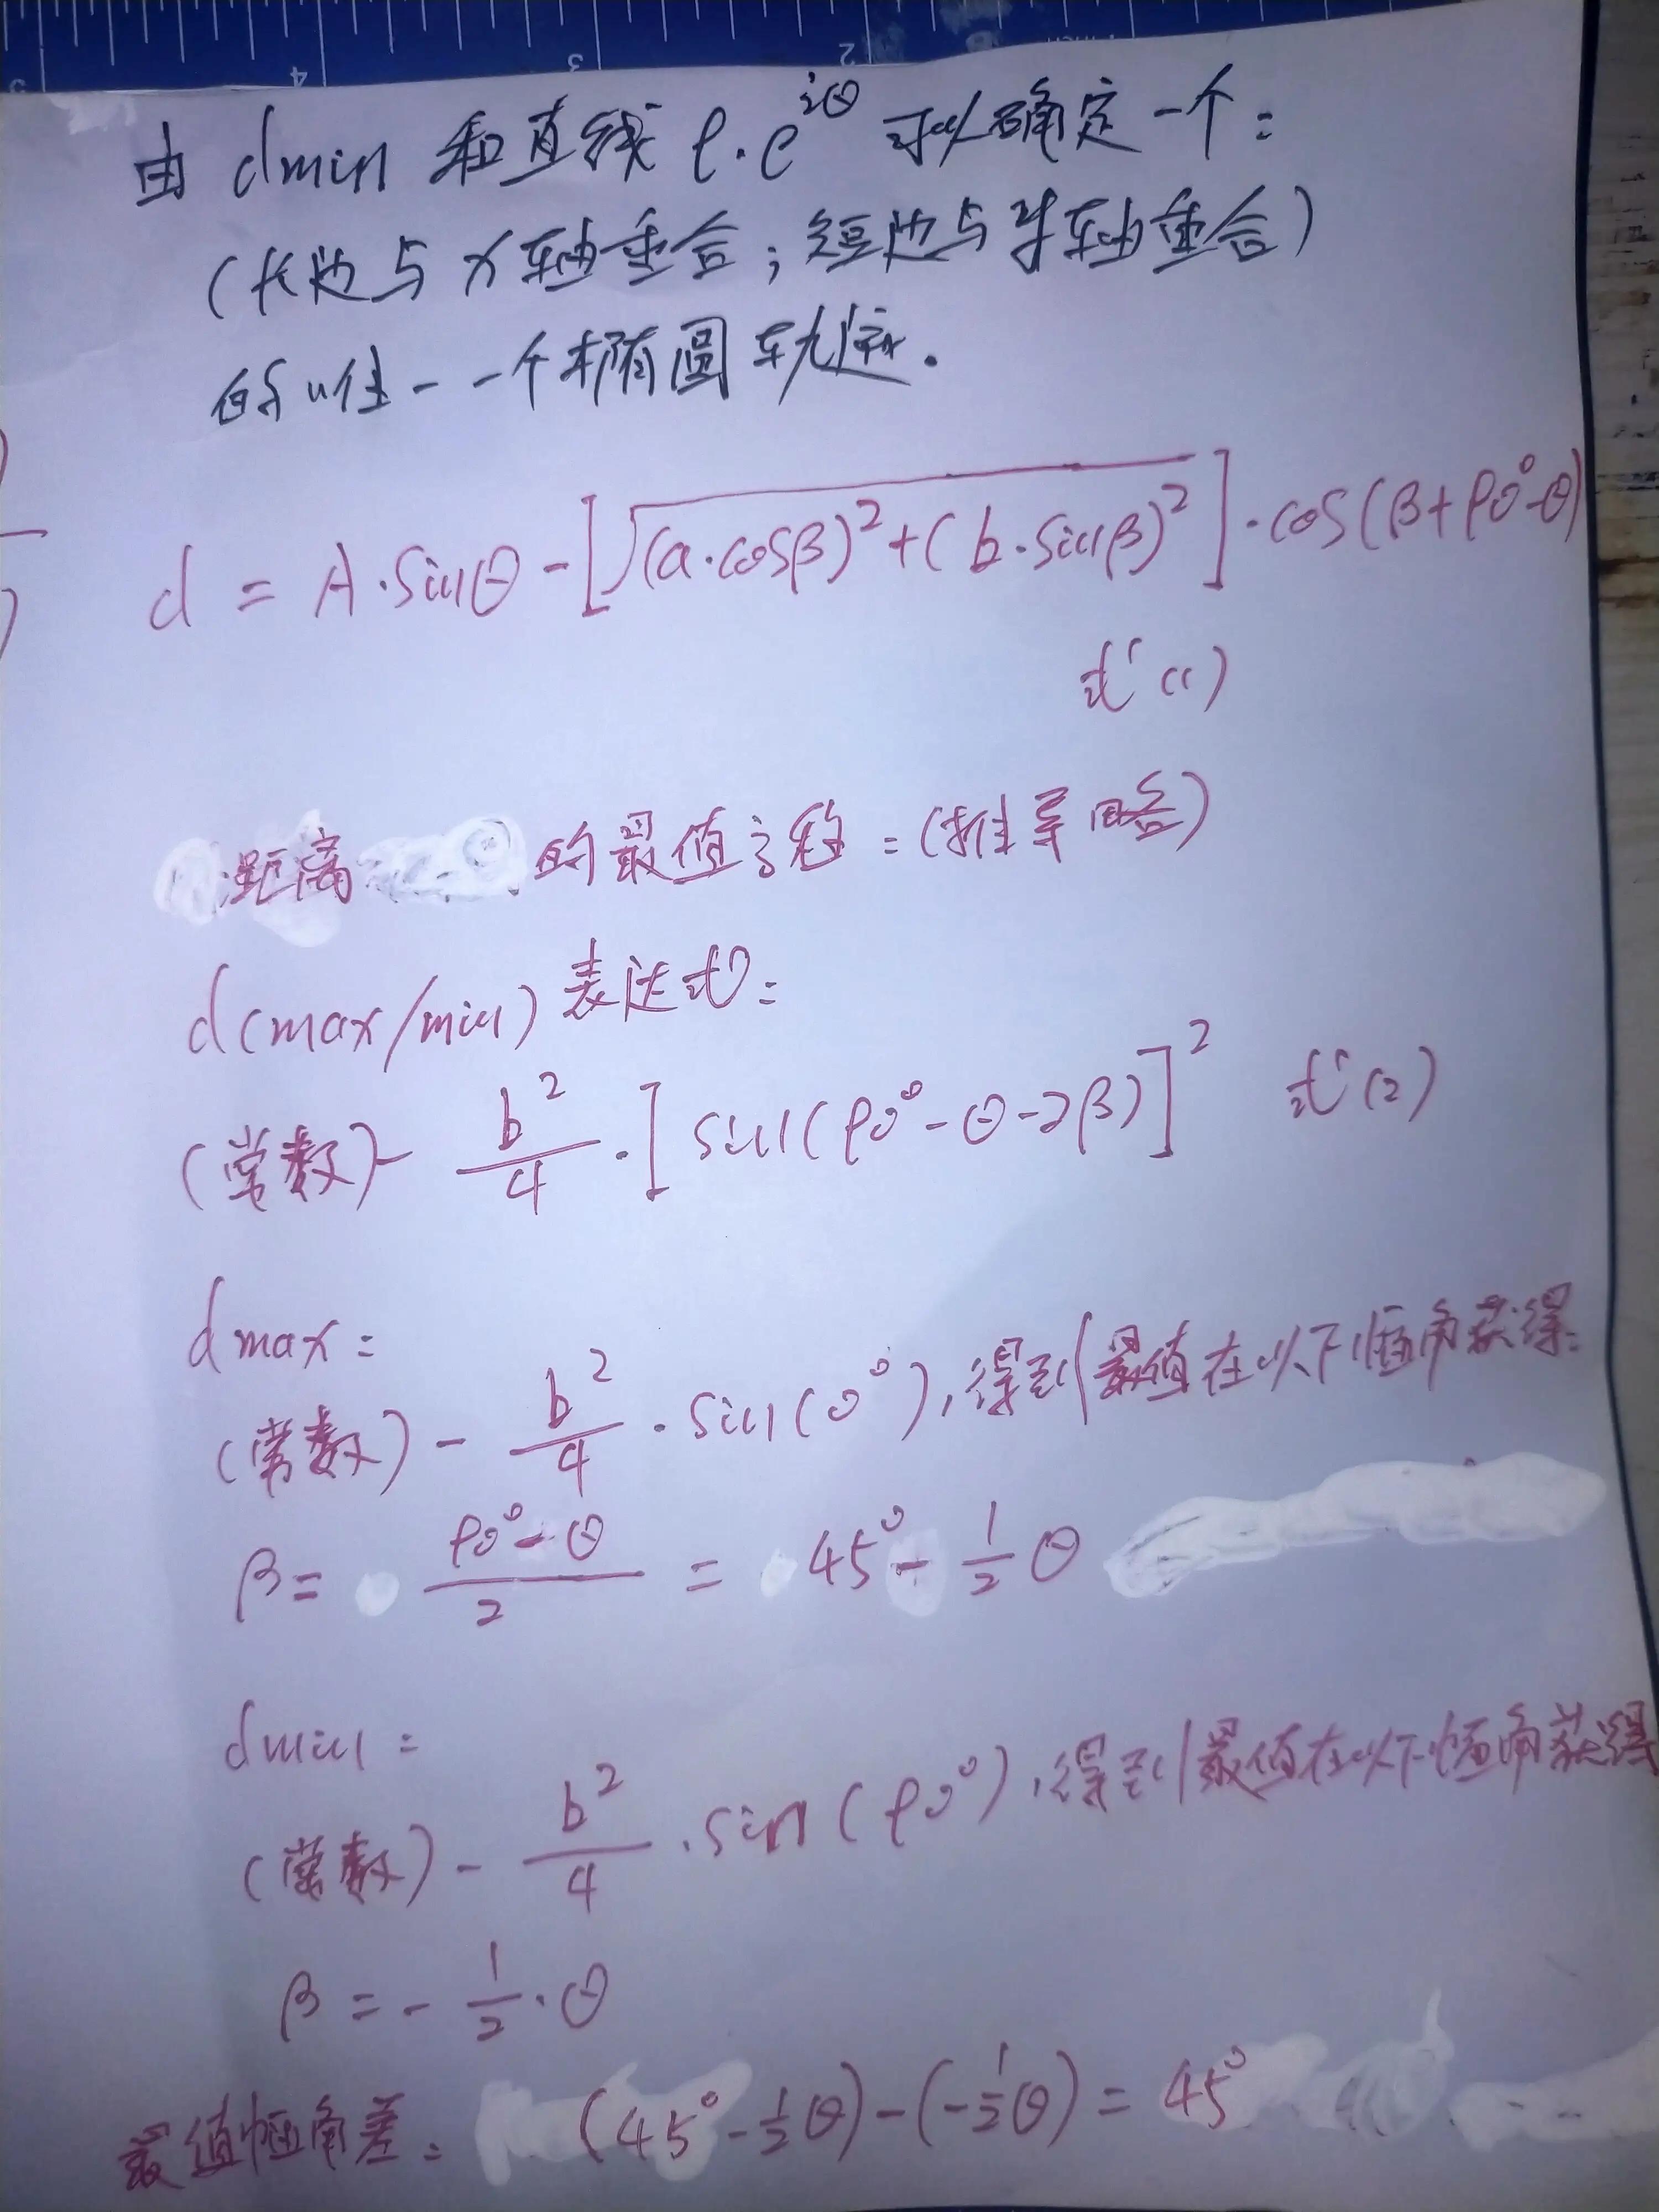 4 3 2
由 dmin 和直线 ρ·e^{iθ} 可以确定一个:
(长边与 x 轴重合;短边与 y 轴重合)
的"唯一一个椭圆轨迹.
d = A·sinθ - [√((a·cosβ)² + (b·sinβ)²)]·cos(β+90°-θ)
式(1)
距离 的最值方程:(推导略)
d(max/min) 表达式:
(常数) - b²/4 · [sin(90°-θ-2β)]² 式(2)
dmax:
(常数) - b²/4 · sin(0°), 得到最值在以下幅角获得:
β = (90°-θ)/2 = 45° - 1/2 θ
dmin:
(常数) - b²/4 · sin(90°), 得到最值在以下幅角获得
β = - 1/2 · θ
最值幅角差: (45° - 1/2 θ) - (- 1/2 θ) = 45°